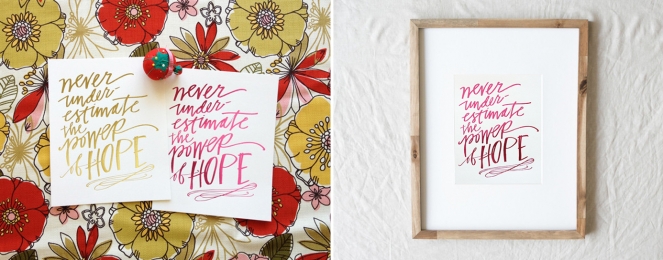 never
under-
estimate
the
power
of HOPE
never
under-
estimate
the
power
of HOPE
never
under-
estimate
the
power
of HOPE